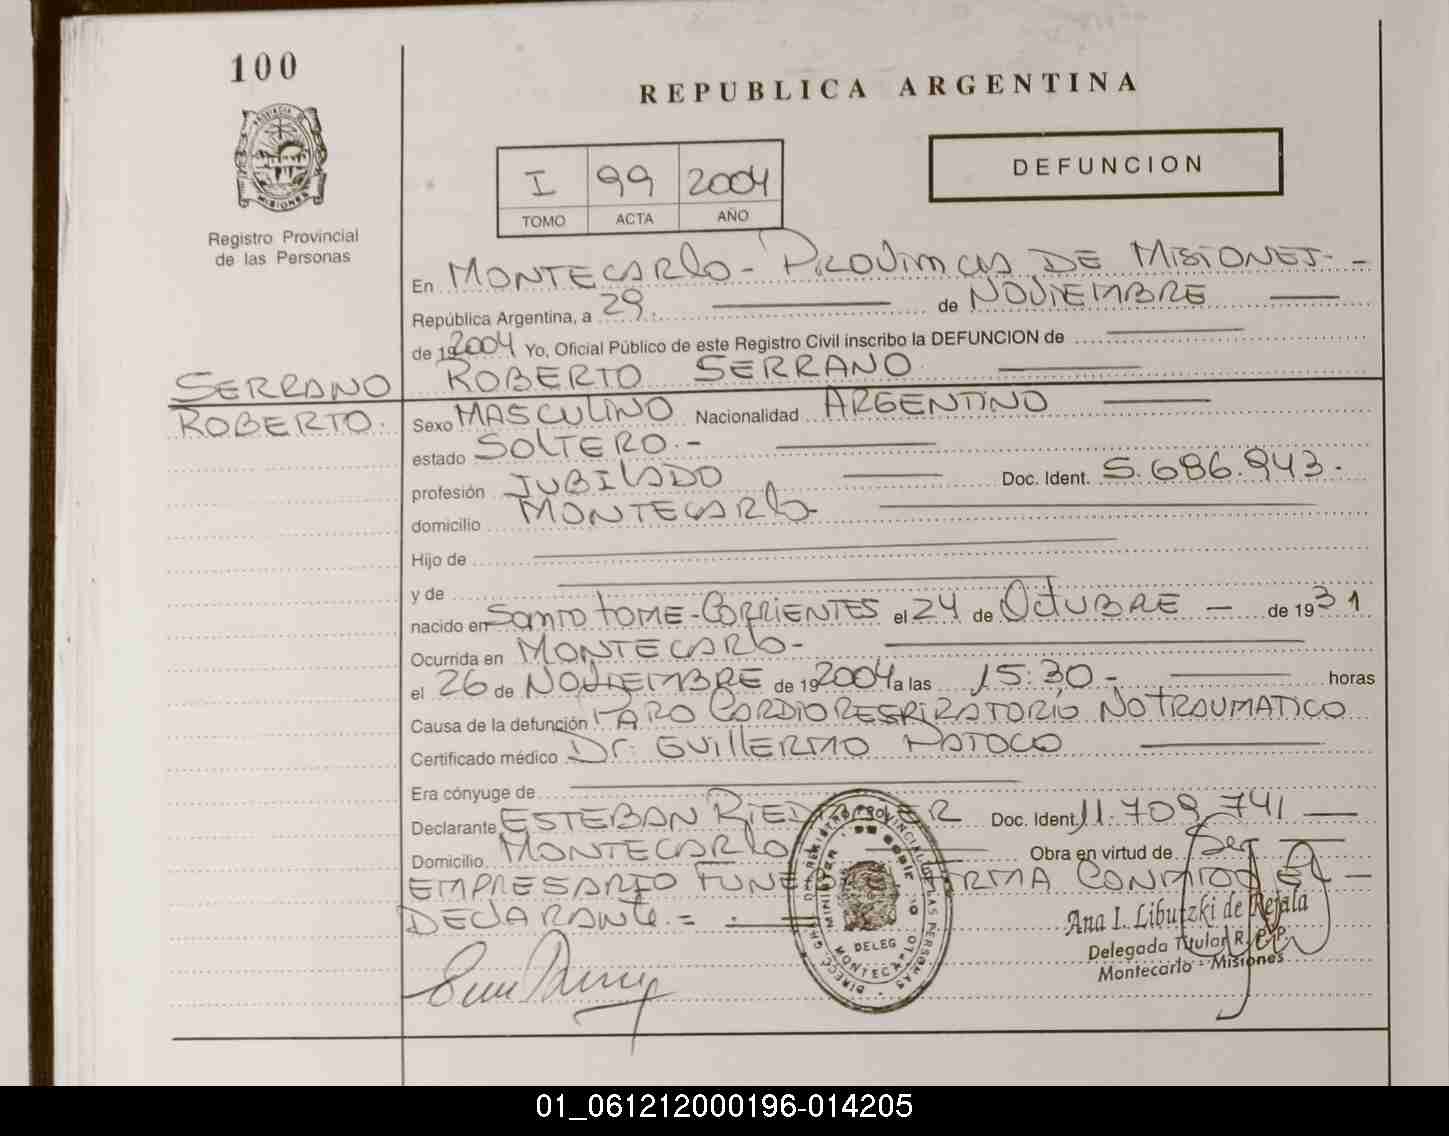 100
REPUBLICA ARGENTINA
PROVINCIA DE MISIONES
Registro Provincial
de las Personas
I 99 2004
TOMO ACTA AÑO
DEFUNCION
En MONTECARLO - PROVINCIA DE MISIONES. -
República Argentina, a 29. de NOVIEMBRE
de 19 2004 Yo, Oficial Público de este Registro Civil inscribo la DEFUNCION de
ROBERTO SERRANO
SERRANO
ROBERTO.
Sexo MASCULINO Nacionalidad ARGENTINO
estado SOLTERO.-
profesión JUBILADO Doc. Ident. 5.686.943.
domicilio MONTECARLO-
Hijo de
y de
nacido en SANTO TOME-CORRIENTES el 24 de OCTUBRE - de 1931
Ocurrida en MONTECARLO-
el 26 de NOVIEMBRE de 19 2004 a las 15:30- horas
Causa de la defunción PARO CARDIORESPIRATORIO NO TRAUMATICO
Certificado médico Dr. GUILLERMO
Era cónyuge de
Declarante ESTEBAN Doc. Ident. 11.709.741
Domicilio MONTECARLO Obra en virtud de Ser
EMPRESARIO FUNE FIRMA CONMIGO EL -
DECLARANTE. =
Ana I. Libutzki de Rejala
Delegada Titular R. P. P.
Montecarlo - Misiones
DELEG
MONTECARLO
01_061212000196-014205